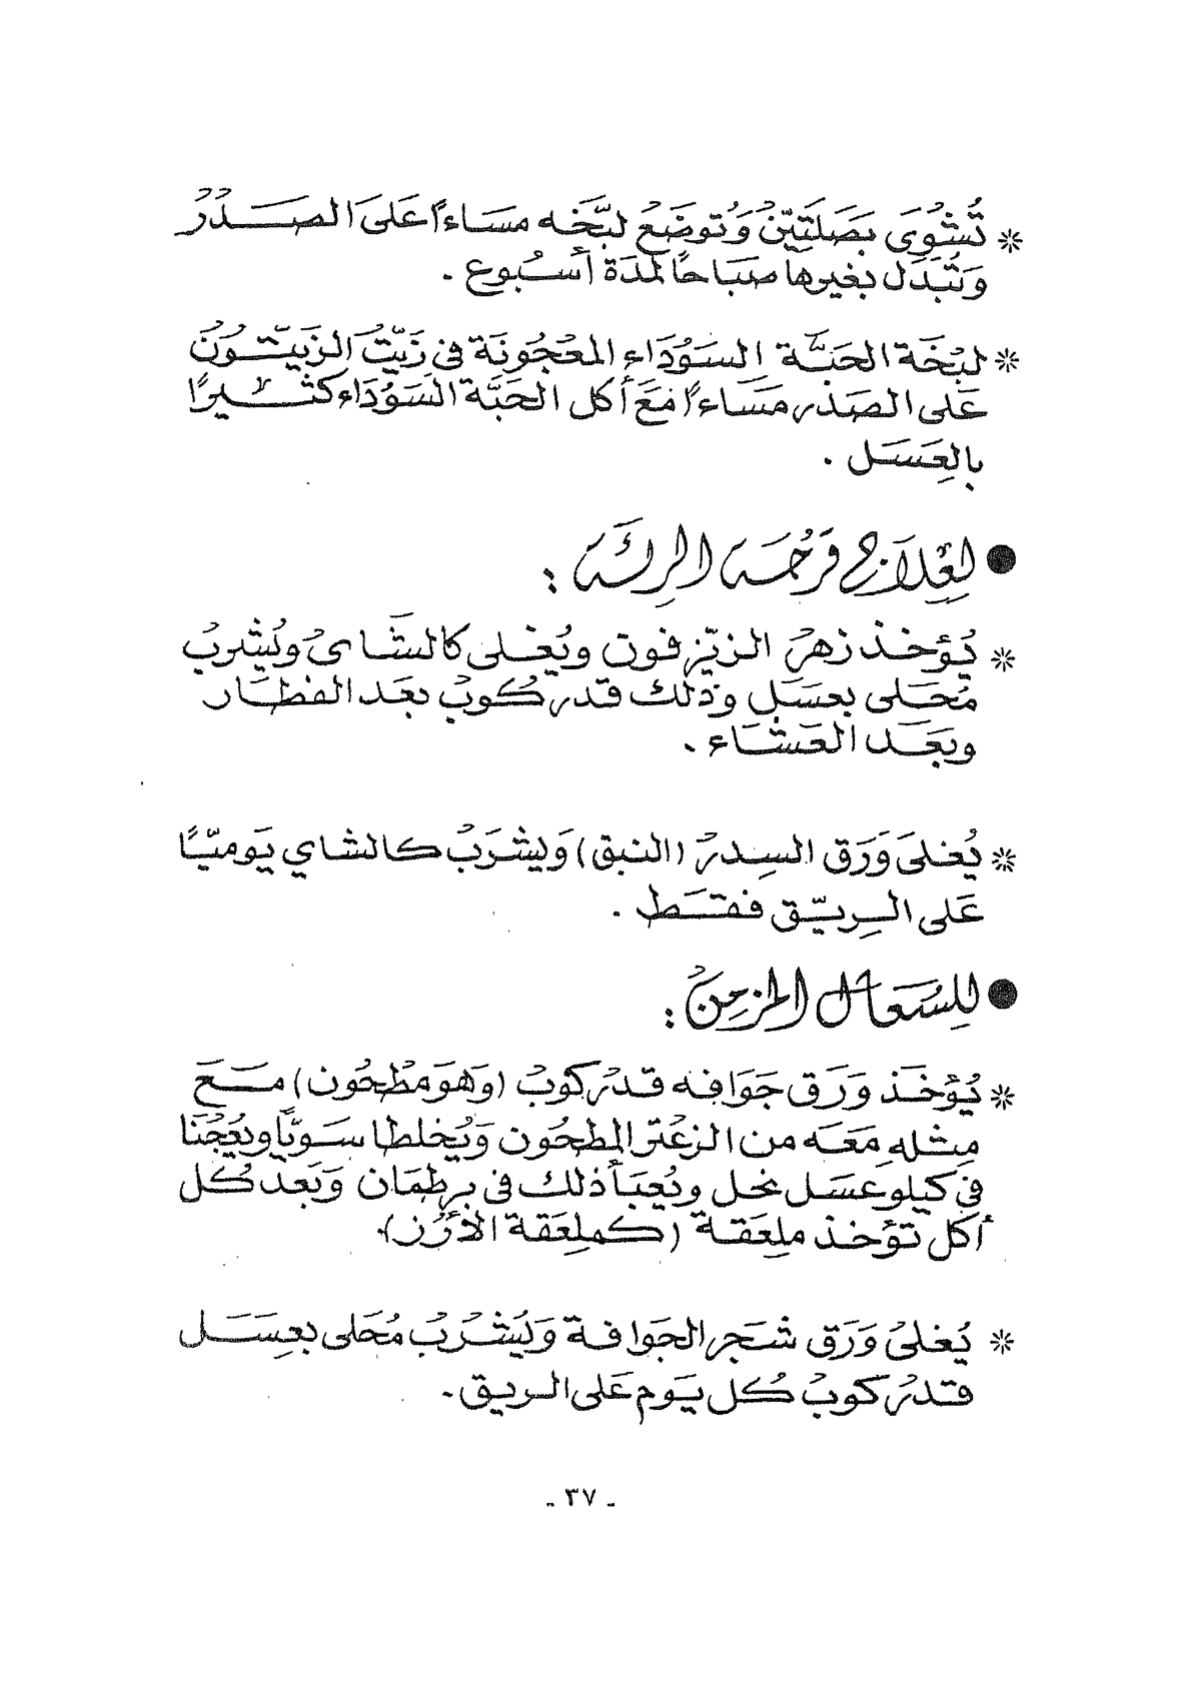 * تُشْوَى بَصَلَتَيْنْ وَتُوضَعْ لَبْخَه مسَاءاً عَلىَ الصَـدْرْ
وَتُبَدَل بغيرها صبَاحًا لمدَة أسْبُوع .
* لبْخَة الحَبَّة السَوْدَاء المعْجُونَة فى زَيْتْ الزَيتْونْ
عَلى الصَدْر مَسَاءاً مَعَ أكل الحَبَّة السَوْدَاء كثيرًا
بالعِسَل .
● لِعِلاَج قرْحُـة الرئـَة :
* يُؤخذ زهرْ الزيْزفون ويُغلى كالشَاىْ وَيُشْربْ
مُحَلى بعسَل وذلك قدر كُوبْ بعَد الفطَار
وبعَد العَشَاء .
* يُغلىَ وَرَق السِدرْ (النبق) وَيشرَبْ كالشاي يَوميًّا
عَلى الرِيّق فقـَط .
● للِسُعَال المزمِنْ :
* يُؤْخَذ وَرَق جَوَافه قدْر كوبْ (وَهوَ مَطْحُون) مـَعَ
مِثله مَعَه من الزعْتر المطحُون وَيُخلطا سَويًّا ويُعْجْنَا
في كيلو عَسَل نحل ويُعبَأ ذلك فى برطمَان وَبَعد كُل
أكل تؤخذ ملِعَقة (كملِعَقة الأرُز).
* يُغلىْ وَرَق شَجر الجَوافة وَيَشْرَبْ مُحَلى بعِسَـل
قدْر كوبْ كُل يَوم عَلى الريق .
ـ ٣٧ ـ